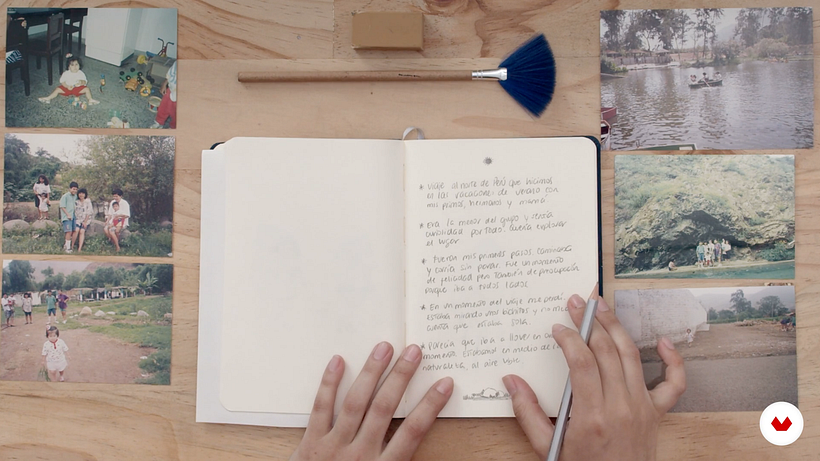 * Viaje al norte de Perú que hicimos
en las vacaciones de verano con
mis primos, hermanos y mamá.
* Era la menor del grupo y sentía
curiosidad por todo, quería explorar
el lugar
* Fueron mis primeros pasos, caminaba
y corría sin parar. Fue un momento
de felicidad pero también de preocupación
porque iba a todos lados.
* En un momento del viaje me perdí,
estaba mirando unos bichitos y no me
cuenta que estaba sola.
* Parecía que iba a llover en
momento. Estábamos en medio de la
naturaleza, al aire libre.